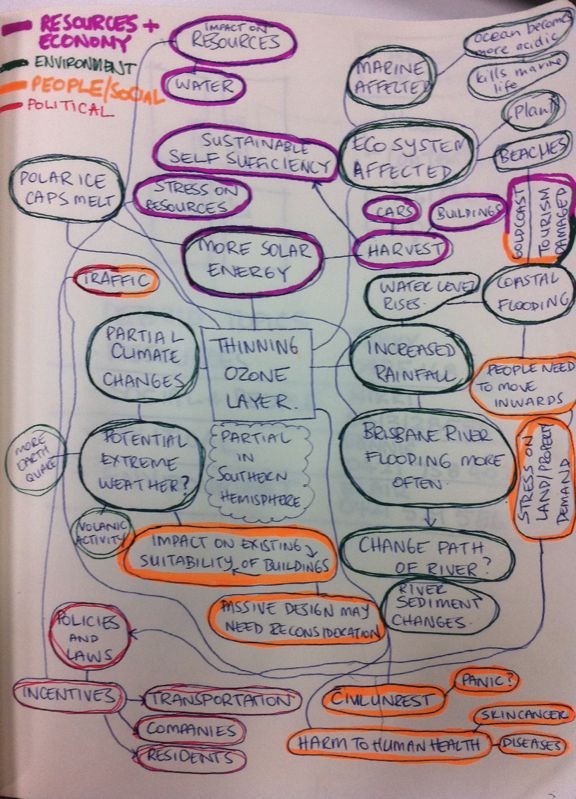 RESOURCES +
ECONOMY
ENVIRONMENT
PEOPLE/SOCIAL
POLITICAL
IMPACT ON
RESOURCES
WATER
MARINE
AFFECTED
ocean becomes
more acidic
kills marine
life
SUSTAINABLE
SELF SUFFICIENCY
ECO SYSTEM
AFFECTED
Plant
BEACHES
POLAR ICE
CAPS MELT
STRESS ON
RESOURCES
CARS
BUILDINGS
HARVEST
GOLDCOAST
TOURISM
DAMAGED
MORE SOLAR
ENERGY
TRAFFIC
WATER LEVEL
RISES.
COASTAL
FLOODING
PARTIAL
CLIMATE
CHANGES
THINNING
OZONE
LAYER.
INCREASED
RAINFALL
PEOPLE NEED
TO MOVE
INWARDS
PARTIAL
IN
SOUTHERN
HEMISPHERE
BRISBANE RIVER
FLOODING MORE
OFTEN.
STRESS ON
LAND/PROPERTY
DEMAND
MORE
EARTH
QUAKE
POTENTIAL
EXTREME
WEATHER?
VOLANIC
ACTIVITY
IMPACT ON EXISTING
SUITABILITY OF BUILDINGS
CHANGE PATH
OF RIVER?
RIVER
SEDIMENT
CHANGES.
PASSIVE DESIGN MAY
NEED RECONSIDORATION
POLICIES
AND
LAWS
INCENTIVES
TRANSPORTATION
COMPANIES
RESIDENTS
CIVIL UNREST
PANIC?
HARM TO HUMAN HEALTH
SKIN CANCER
DISEASES